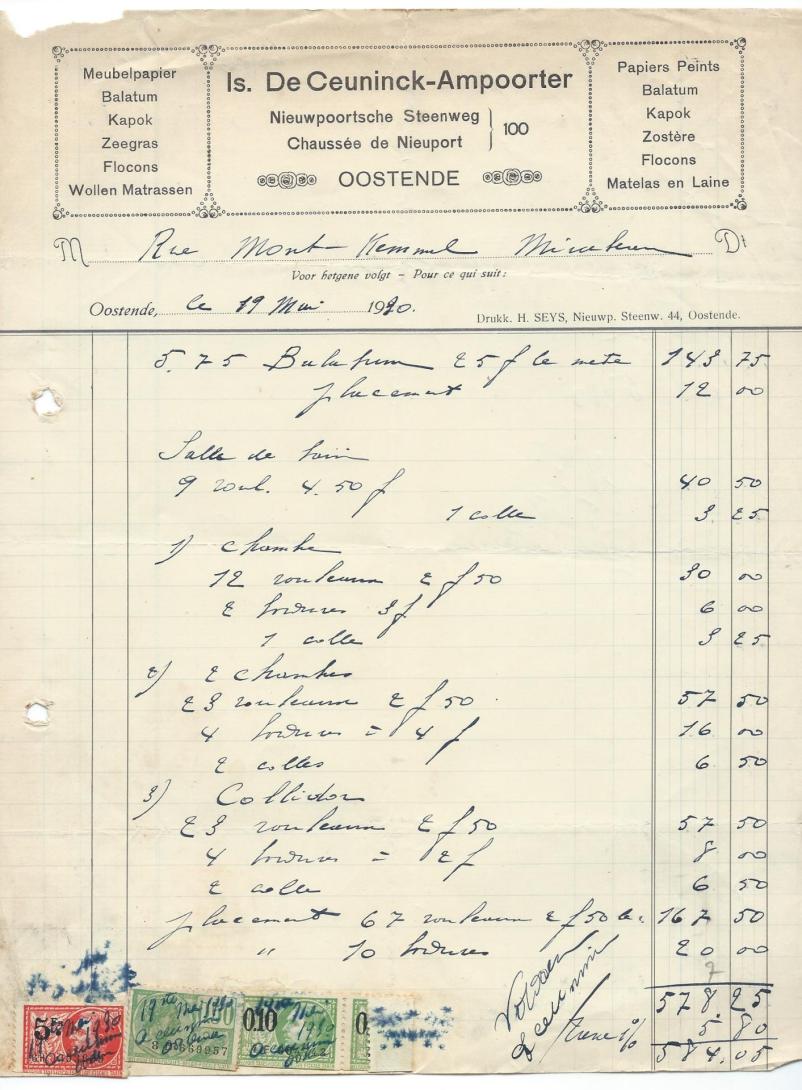 Meubelpapier
Balatum
Kapok
Zeegras
Flocons
Wollen Matrassen
Is. De Ceuninck-Ampoorter
Nieuwpoortsche Steenweg
Chaussée de Nieuport
100
OOSTENDE
Papiers Peints
Balatum
Kapok
Zostère
Flocons
Matelas en Laine
M Rue Mont-Kemmel Dt
Voor hetgene volgt – Pour ce qui suit:
Oostende, le 19 Mai 1930.
Drukk. H. SEYS, Nieuwp. Steenw. 44, Oostende.
5.75 Balatum 25 f le mete 143 75
placement 12 00
Salle de bain
9 roul. 4.50 f 40 50
1 colle 3 25
1) chambe
12 rouleaux 2 f 50 30 00
2 bordures 3 f 6 00
1 colle 3 25
2) 2 chambes
23 rouleaux 2 f 50 57 50
4 bordures = 4 f 16 00
2 colles 6 50
3) Collidor
23 rouleaux 2 f 50 57 50
4 bordures = 2 f 8 00
2 colle 6 50
placement 67 rouleaux 2 f 50 le 167 50
" 10 bordures 20 00
578.25
Voldaan
taxe 1% 5.80
Deceuninck
584.05
0.10